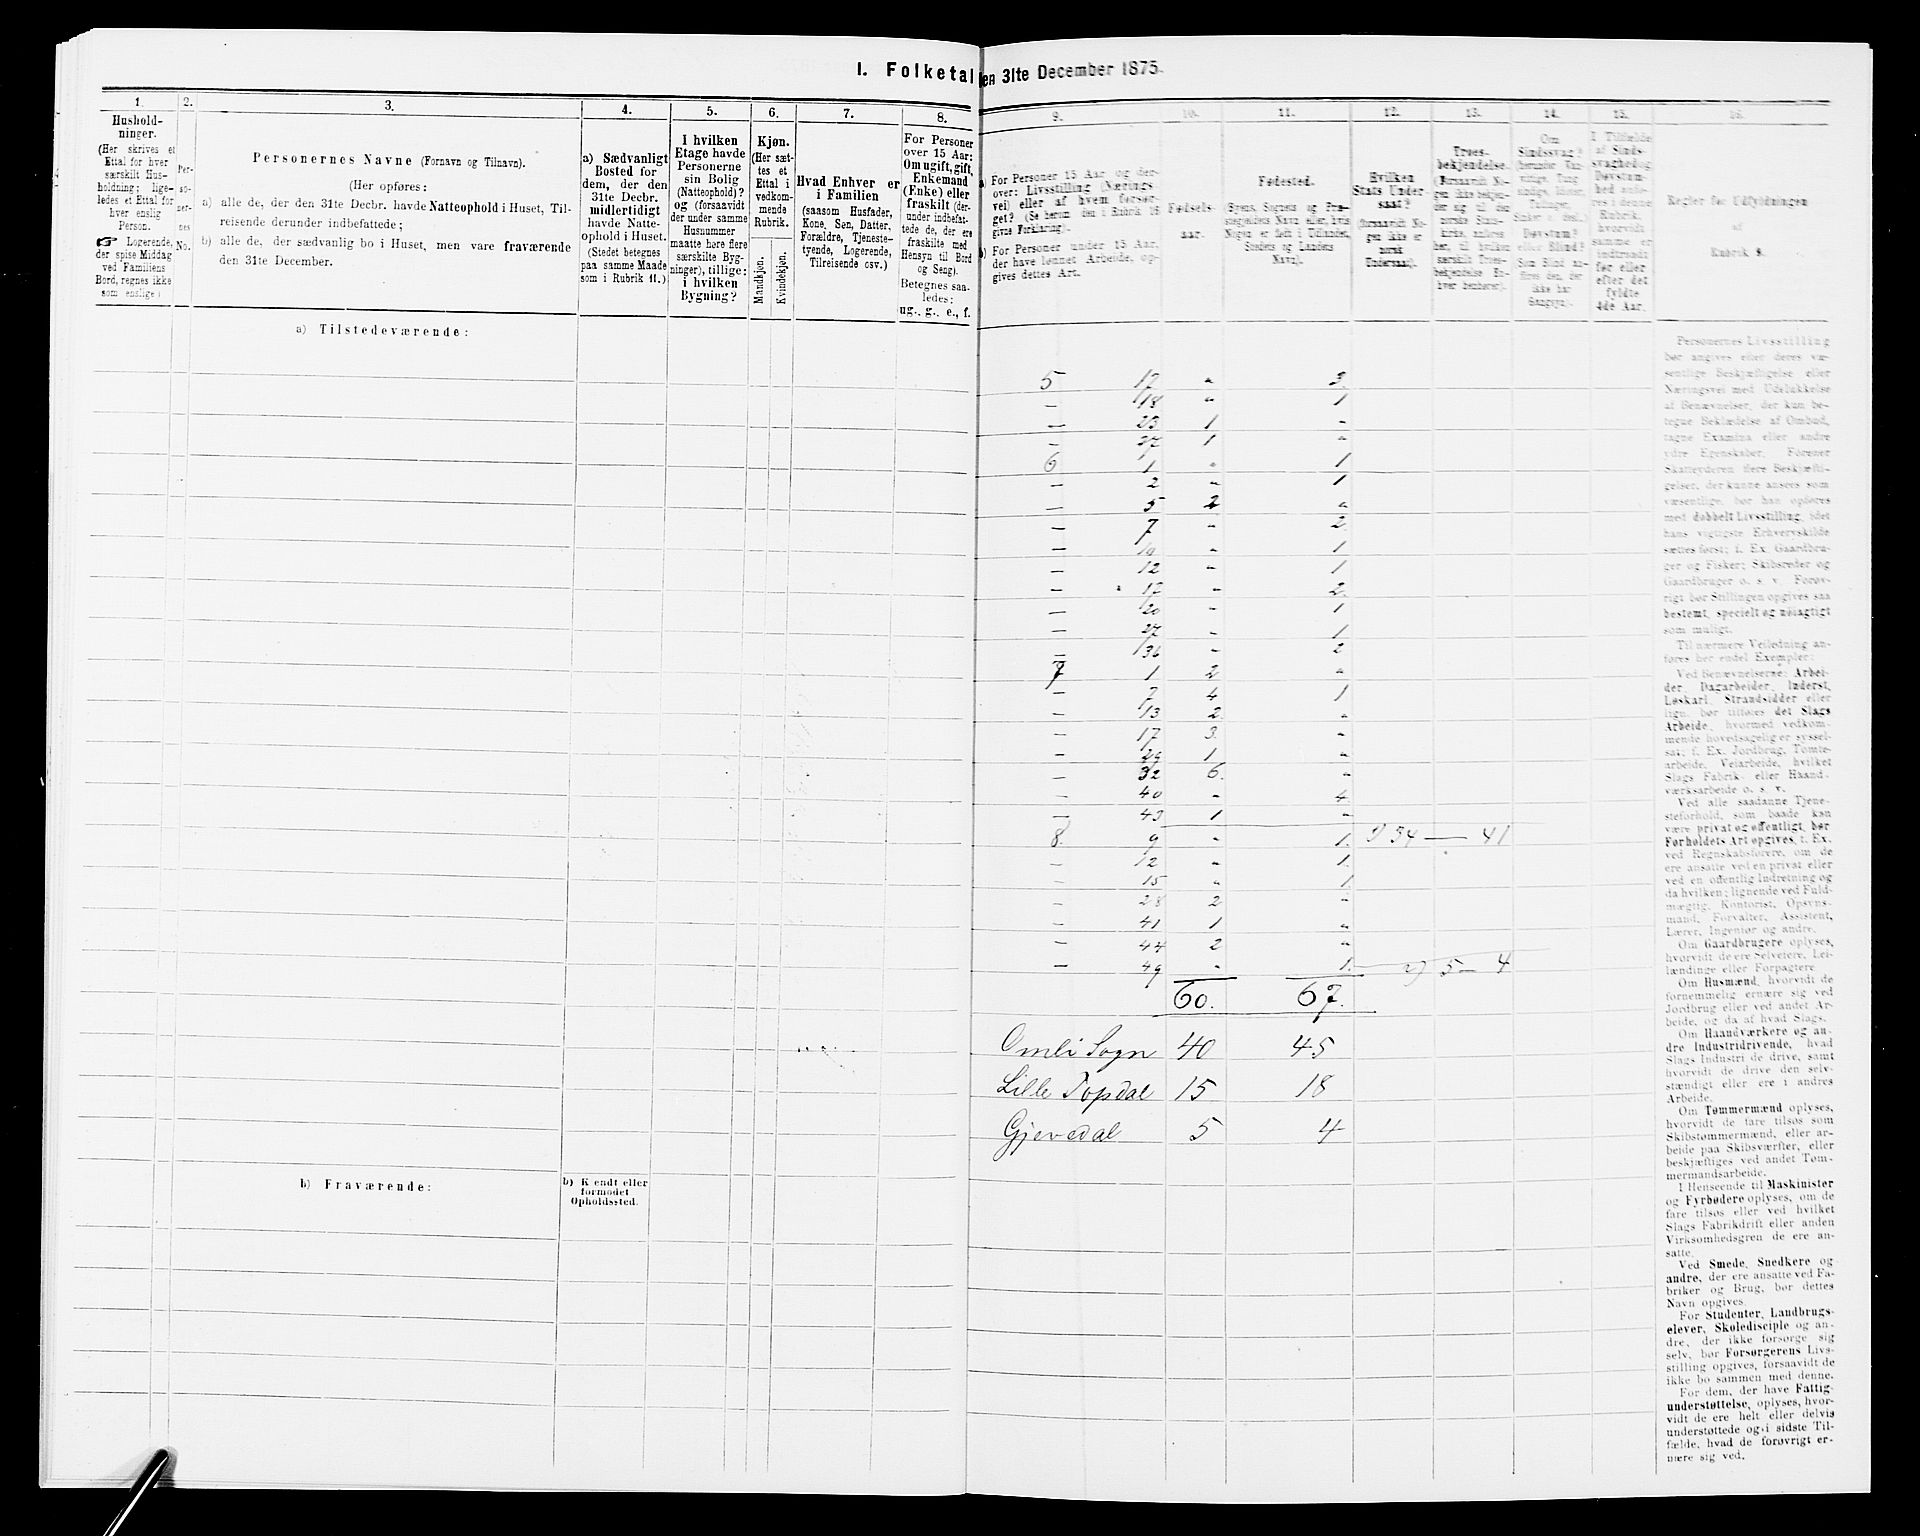 I. Folketal den 31te December 1875.
1.
Hushold-
ninger.
(Her skrives et
Ettal for hver
særskilt Hus-
holdning; lige-
ledes et Ettal for
hver enslig
Person.
☞ Logerende,
der spise Middag
ved Familiens
Bord, regnes ikke
som enslige.)
2.
Per-
so-
ner-
nes
No.
3.
Personernes Navne (Fornavn og Tilnavn).
(Her opføres:
a) alle de, der den 31te Decbr. havde Natteophold i Huset, Til-
reisende derunder indbefattede;
b) alle de, der sædvanlig bo i Huset, men vare fraværende
den 31te December.
4.
a) Sædvanligt
Bosted for
dem, der den
31te Decbr.
midlertidigt
havde Natte-
ophold i Huset.
(Stedet betegnes
paa samme Maade
som i Rubrik 11.)
5.
I hvilken
Etage havde
Personerne
sin Bolig
(Natteophold)?
og (forsaavidt
der under samme
Husnummer
maatte høre flere
særskilte Byg-
ninger), tillige:
i hvilken
Bygning?
6.
Kjøn.
(Her sæt-
tes et
Ettal i
vedkom-
mende
Rubrik.
Mandkjøn.
Kvindekjøn.
7.
Hvad Enhver er
i Familien
(saasom Husfader,
Kone, Søn, Datter,
Forældre, Tjeneste-
tyende, Logerende,
Tilreisende osv.)
8.
For Personer
over 15 Aar:
Om ugift, gift,
Enkemand
(Enke) eller
fraskilt (der-
under indbefat-
tede de, der ere
fraskilte med
Hensyn til Bord
og Seng).
Betegnes saa-
ledes:
ug., g., e., f.
9.
a) For Personer 15 Aar og der-
over: Livsstilling (Nærings-
vei) eller af hvem forsør-
get? (Se herom den i Rubrik 16
givne Forklaring).
b) For Personer under 15 Aar,
der have lønnet Arbeide, op-
gives dettes Art.
10.
Fødsels-
aar.
11.
Fødested.
(Byens, Sognets og Præ-
stegjeldets Navn eller, hvis
Nogen er født i Udlandet,
Stedets og Landets
Navn).
12.
Hvilken
Stats Under-
saat?
(forsaavidt No-
gen ikke er
norsk
Undersaat).
13.
Troes-
bekjendelse.
(Forsaavidt No-
gen ikke bekjen-
der sig til den
norske Stats-
kirke, anføres
her, til hvilken
særskilt Troes-
bekjendelse En-
hver henhører).
14.
Om
Sindssvag?
(herunder Van-
vittige, Tung-
sindige, Idioter,
Tullinger,
Sinker o. desl.)
Døvstum?
eller Blind?
Som Blind an-
føres den, der
ikke har
Gangsyn).
15.
I Tilfælde
af Sinds-
svaghed og
Døvstum-
hed anfø-
res i denne
Rubrik,
hvorvidt
samme er
indtraadt
før eller
efter det
fyldte
4de Aar.
16.
Regler for Udfyldningen
af
Rubrik 9.
a) Tilstedeværende:
5 17 „ 3.
— 18 „ 1
— 23 1 „
— 27 1 „
6 1 „ 1
— 2 „ 1
— 5 2 „
— 7 „ 2.
— 10 „ 1
— 12 „ 1
— 17 „ 2.
— 20 „ 1
— 27 „ 1
— 36 „ 2
7 1 2 „
— 7 4 1
— 13 2. „
— 17 3. „
— 29 1 „
— 32 6. „
— 40 „ 4.
— 43 1 „
8. 9 „ 1. 1) 54 — 41
— 12 „ 1.
— 15 „ 1.
— 28 2 „
— 41 1 „
— 44 2 „
— 49 „ 1. 2) 5 — 4
60. 67.
Omli Sogn 40 45
Lille Topdal 15 18
Gjevedal 5 4
b) Fraværende:
b) Kjendt eller
formodet
Opholdssted.
Personernes Livsstilling
bør angives efter deres væ-
sentlige Beskjæftigelse eller
Næringsvei med Udelukkelse
af Benævnelser, der kun be-
tegne Beklædelse af Ombud,
tagne Examina eller andre
ydre Egenskaber. Forener
Skatteyderen flere Beskjæfti-
gelser, der kunne ansees som
væsentlige, bør han opføres
med dobbelt Livsstilling, idet
hans vigtigste Erhvervskilde
sættes først; f. Ex. Gaardbru-
ger og Fisker; Skibsreder og
Gaardbruger o. s. v. Forøv-
rigt bør Stillingen opgives saa
bestemt, specielt og nøiagtigt
som muligt.
Til nærmere Veiledning an-
føres her endel Exempler:
Ved Benævnelserne: Arbei-
der, Dagarbeider, Inderst,
Løskarl, Strandsidder eller
lign. bør tilføies det Slags
Arbeide, hvormed vedkom-
mende hovedsagelig er syssel-
sat; f. Ex. Jordbrug, Tomte-
arbeide, Veiarbeide, hvilket
Slags Fabrik- eller Haand-
værksarbeide o. s. v.
Ved alle saadanne Tjene-
steforhold, som baade kan
være privat og offentligt, bør
Forholdets Art opgives, f. Ex.
ved Regnskabsførere, om de
ere ansatte ved en privat eller
ved en offentlig Indretning og
da hvilken; lignende ved Fuld-
mægtig, Kontorist, Opsyns-
mand, Forvalter, Assistent,
Lærer, Ingeniør og andre.
Om Gaardbrugere oplyses,
hvorvidt de ere Selveiere, Lei-
lændinge eller Forpagtere.
Om Husmænd, hvorvidt de
fornemmelig ernære sig ved
Jordbrug eller ved andet Ar-
beide, og da af hvad Slags.
Om Haandværkere og an-
dre Industridrivende, hvad
Slags Industri de drive, samt
hvorvidt de drive den selv-
stændigt eller ere i andres
Arbeide.
Om Tømmermænd oplyses,
hvorvidt de fare tilsøs som
Skibstømmermænd, eller ar-
beide paa Skibsværfter, eller
beskjæftiges ved andet Tøm-
mermandsarbeide.
I Henseende til Maskinister
og Fyrbødere oplyses, om de
fare tilsøs eller ved hvilket
Slags Fabrikdrift eller anden
Virksomhedsgren de ere an-
satte.
Ved Smede, Snedkere og
andre, der ere ansatte ved Fa-
briker og Brug, bør dettes
Navn opgives.
For Studenter, Landbrugs-
elever, Skoledisciple og an-
dre, der ikke forsørge sig
selv, bør Forsørgerens Livs-
stilling opgives, forsaavidt de
ikke bo sammen med denne.
For dem, der have Fattig-
understøttelse, oplyses, hvor-
vidt de ere helt eller delvis
understøttede og i sidste Til-
fælde, hvad de forøvrigt er-
nære sig ved.